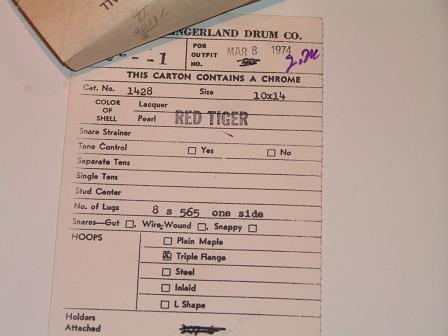 INGERLAND DRUM CO.
1 FOR OUTFIT NO. MAR 8 1974
THIS CARTON CONTAINS A CHROME
Cat. No. 1428 Size 10x14
COLOR OF SHELL Lacquer
Pearl RED TIGER
Snare Strainer
Tone Control ☐ Yes ☐ No
Separate Tens
Single Tens
Stud Center
No. of Lugs 8 s 565 one side
Snares—Gut ☐, Wire-Wound ☐, Snappy ☐
HOOPS ☐ Plain Maple
☒ Triple Flange
☐ Steel
☐ Inlaid
☐ L Shape
Holders
Attached